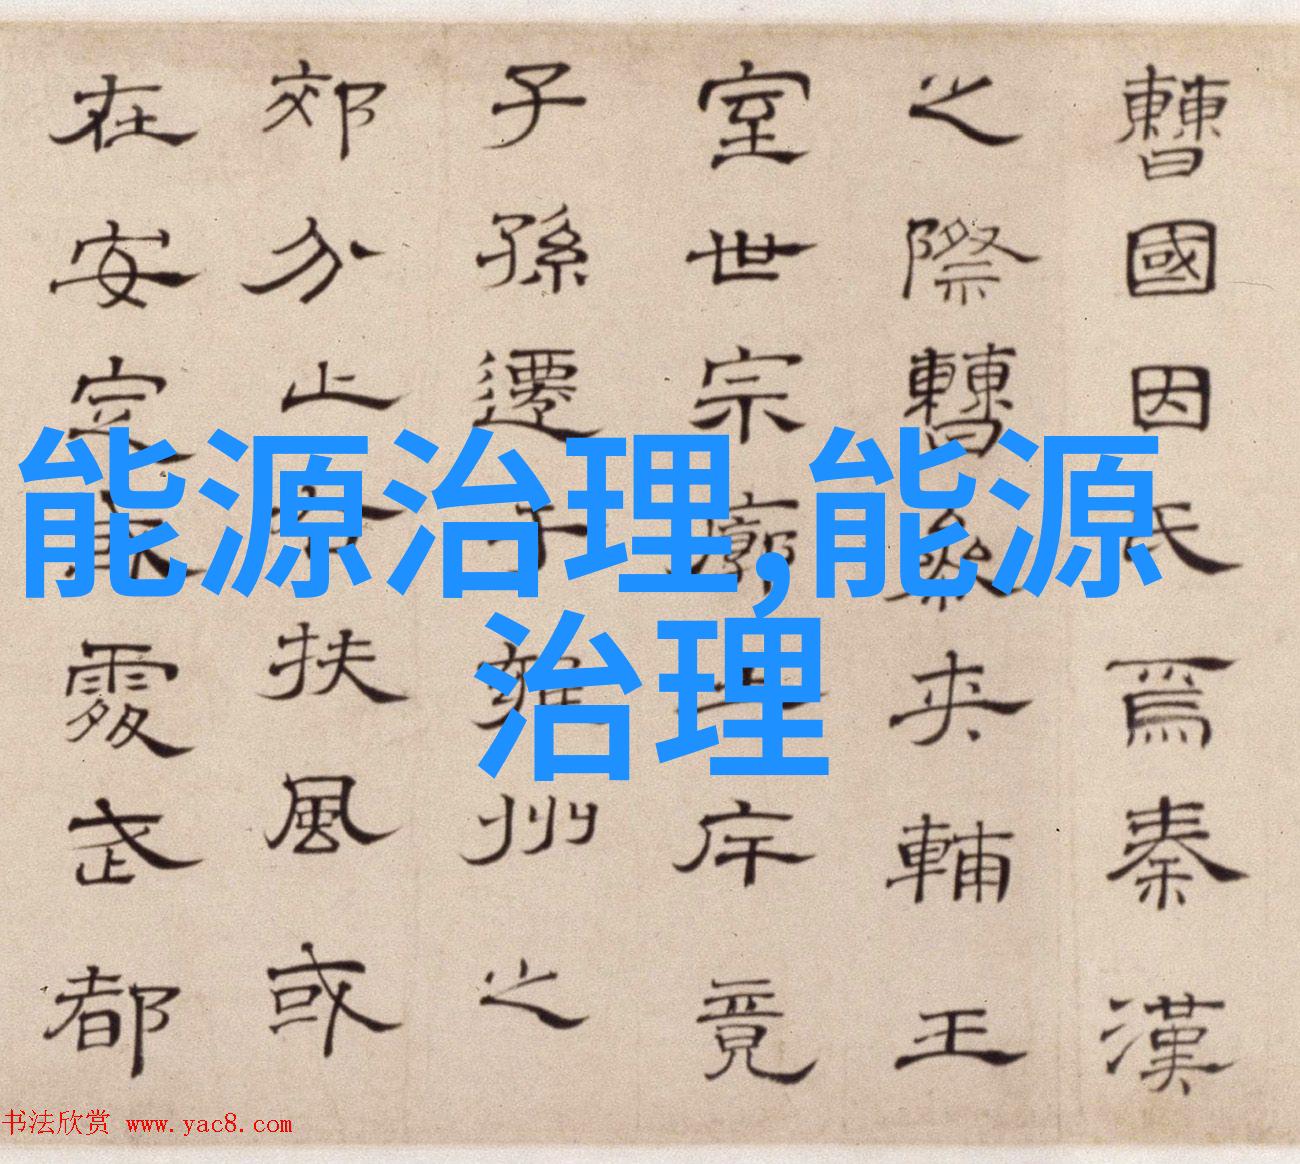 曹國因氏焉秦漢
之際曹參夾輔王
室世宗廓斥竟
子孫遷于雍州之
郊分止扶風或
在安定處武都
能源治理,能源
治理
书法欣赏 www.yac8.com